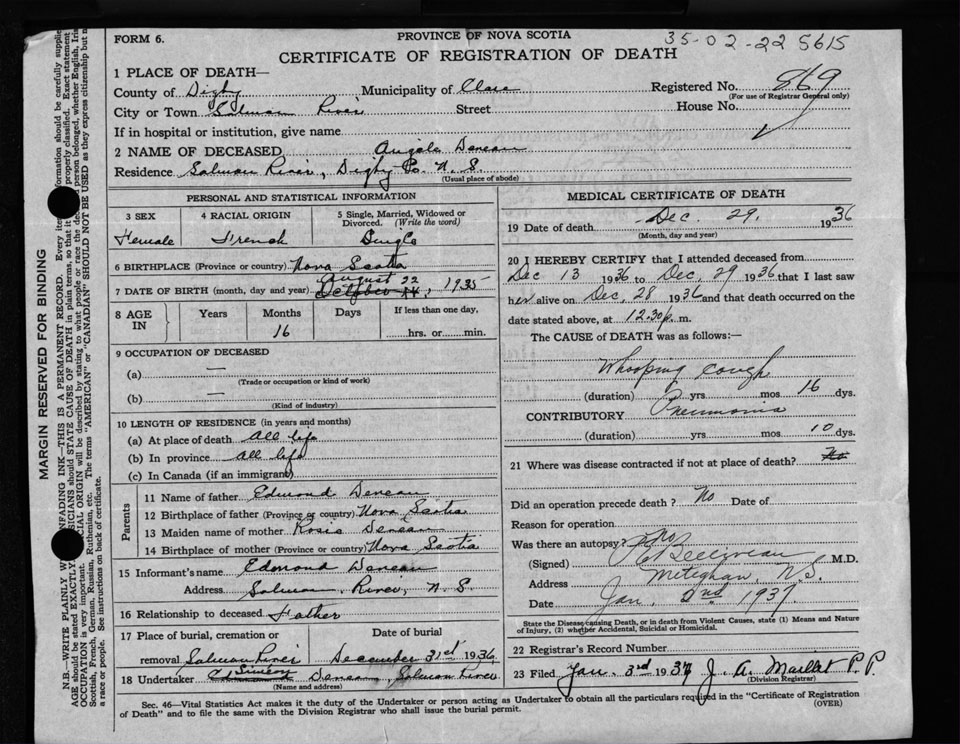 FORM 6.
PROVINCE OF NOVA SCOTIA
35-02-22 5615
CERTIFICATE OF REGISTRATION OF DEATH
1 PLACE OF DEATH—
County of Digby Municipality of Clare Registered No. 869
(For use of Registrar General only)
City or Town Salmon River Street House No.
If in hospital or institution, give name
2 NAME OF DECEASED Angela Deneau
Residence Salmon River, Digby Co. N. S.
(Usual place of abode)
PERSONAL AND STATISTICAL INFORMATION
3 SEX 4 RACIAL ORIGIN 5 Single, Married, Widowed or Divorced. (Write the word)
Female French Single
6 BIRTHPLACE (Province or country) Nova Scotia
August 22
7 DATE OF BIRTH (month, day and year) October 14, 1935
8 AGE IN Years Months Days If less than one day,
16 hrs. or min.
9 OCCUPATION OF DECEASED
(a) —
(Trade or occupation or kind of work)
(b) —
(Kind of industry)
10 LENGTH OF RESIDENCE (in years and months)
(a) At place of death all life
(b) In province all life
(c) In Canada (if an immigrant)
Parents
11 Name of father Edmond Deneau
12 Birthplace of father (Province or country) Nova Scotia
13 Maiden name of mother Rosie Deneau
14 Birthplace of mother (Province or country) Nova Scotia
15 Informant's name Edmond Deneau
Address Salmon River, N. S.
16 Relationship to deceased Father
17 Place of burial, cremation or removal Salmon River
Date of burial December 31st 1936
18 Undertaker Deneau, Salmon River
(Name and address)
MEDICAL CERTIFICATE OF DEATH
19 Date of death Dec. 29, 1936
(Month, day and year)
20 I HEREBY CERTIFY that I attended deceased from
Dec 13 1936 to Dec, 29 1936 that I last saw
her alive on Dec, 28 1936 and that death occurred on the
date stated above, at 12.30 p. m.
The CAUSE of DEATH was as follows:—
Whooping cough
(duration) yrs mos 16 dys.
CONTRIBUTORY Pneumonia
(duration) yrs mos 10 dys.
21 Where was disease contracted if not at place of death? No
Did an operation precede death? No Date of
Reason for operation
Was there an autopsy? No
(Signed) Belliveau M.D.
Address Meteghan, N.S.
Date Jan, 2nd 1937
State the Disease causing Death, or in death from Violent Causes, state (1) Means and Nature
of Injury, (2) whether Accidental, Suicidal or Homicidal.
22 Registrar's Record Number
23 Filed Jan. 3rd 1937 J. A. Maillet P. P.
(Division Registrar)
Sec. 46—Vital Statistics Act makes it the duty of the Undertaker or person acting as Undertaker to obtain all the particulars required in the "Certificate of Registration
of Death" and to file the same with the Division Registrar who shall issue the burial permit.
(OVER)
MARGIN RESERVED FOR BINDING